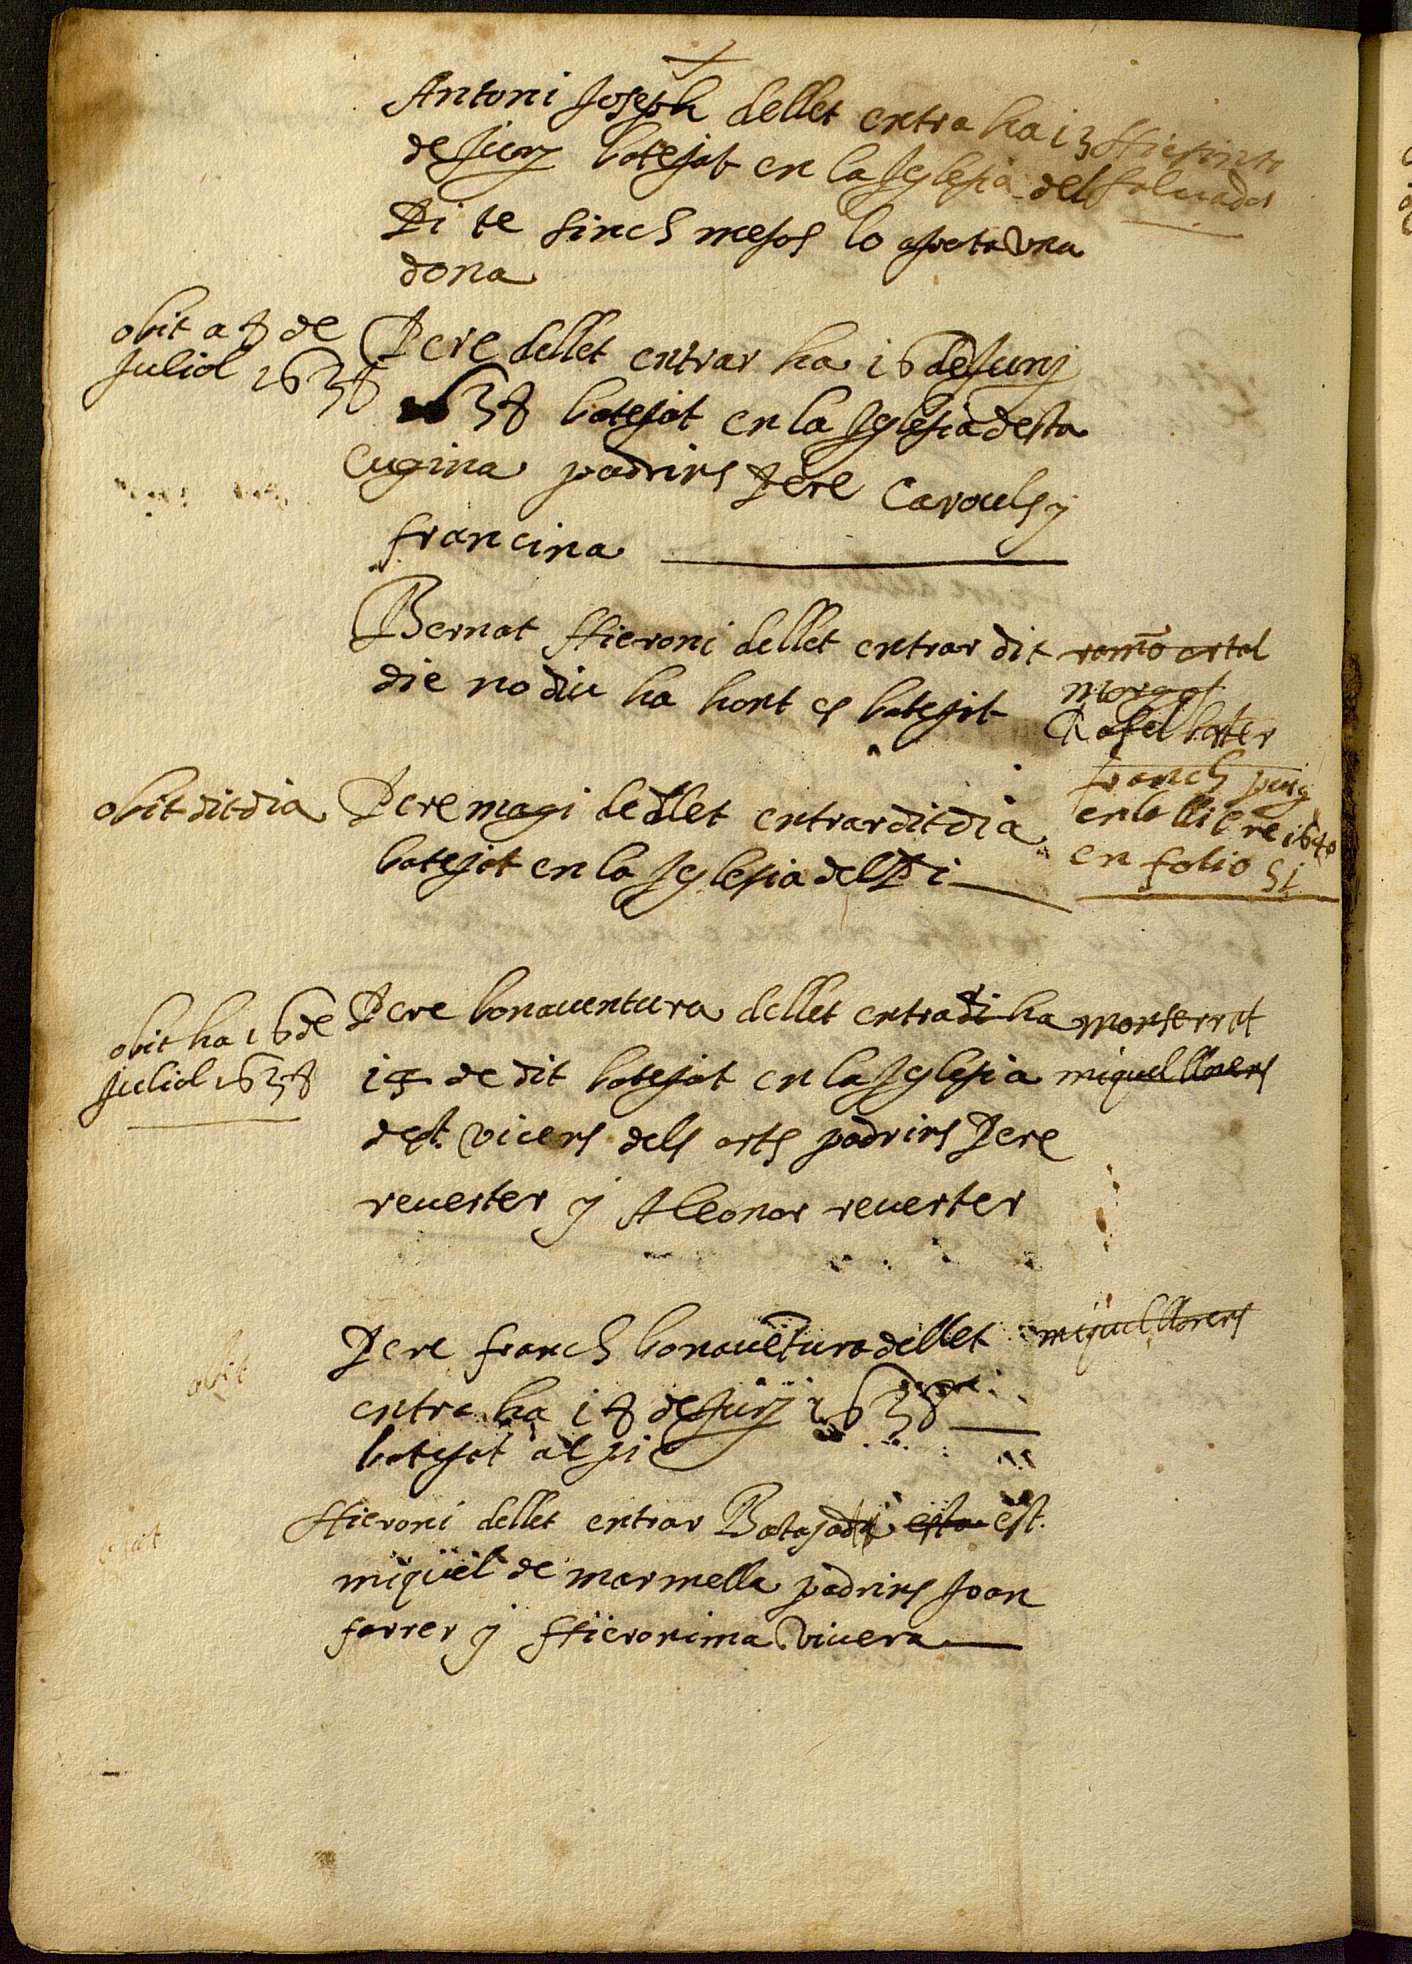 Antoni Joseph dellet entra ha 13
de Juny batejat en la Iglesia del
Pi te sinch mesos lo aporta vna
dona
Hiesinto
saluador
obit a 8 de
Juliol 1638
Pere dellet entrar ha 16 de Juny
1638 batejat en la Iglesia de sta
Eugina padrins Pere
francina
Bernat Hieroni dellet entrar dit
die no diu ha hont es batejat
ramo
Rafel
franch puig
en lo llibre 1640
en folio 51
obit dit dia
Pere magi de dllet entrar dit dia
batejat en la Iglesia del Pi
obit ha 16 de
Juliol 1638
Pere bonauentura dellet entra di ha
de dit batejat en la Iglesia
de st. vicens dels orts padrins Pere
reuerter y Aleonor reuerter
monserrat
miquel llorens
obit
Pere franch bonauētura dellet
entra ha 18 de Juny 1638
batejat al pi
miquel llorens
Hieroni dellet entrar esta est.
miquel de marmella padrins Joan
farrer y Hieronima viuera